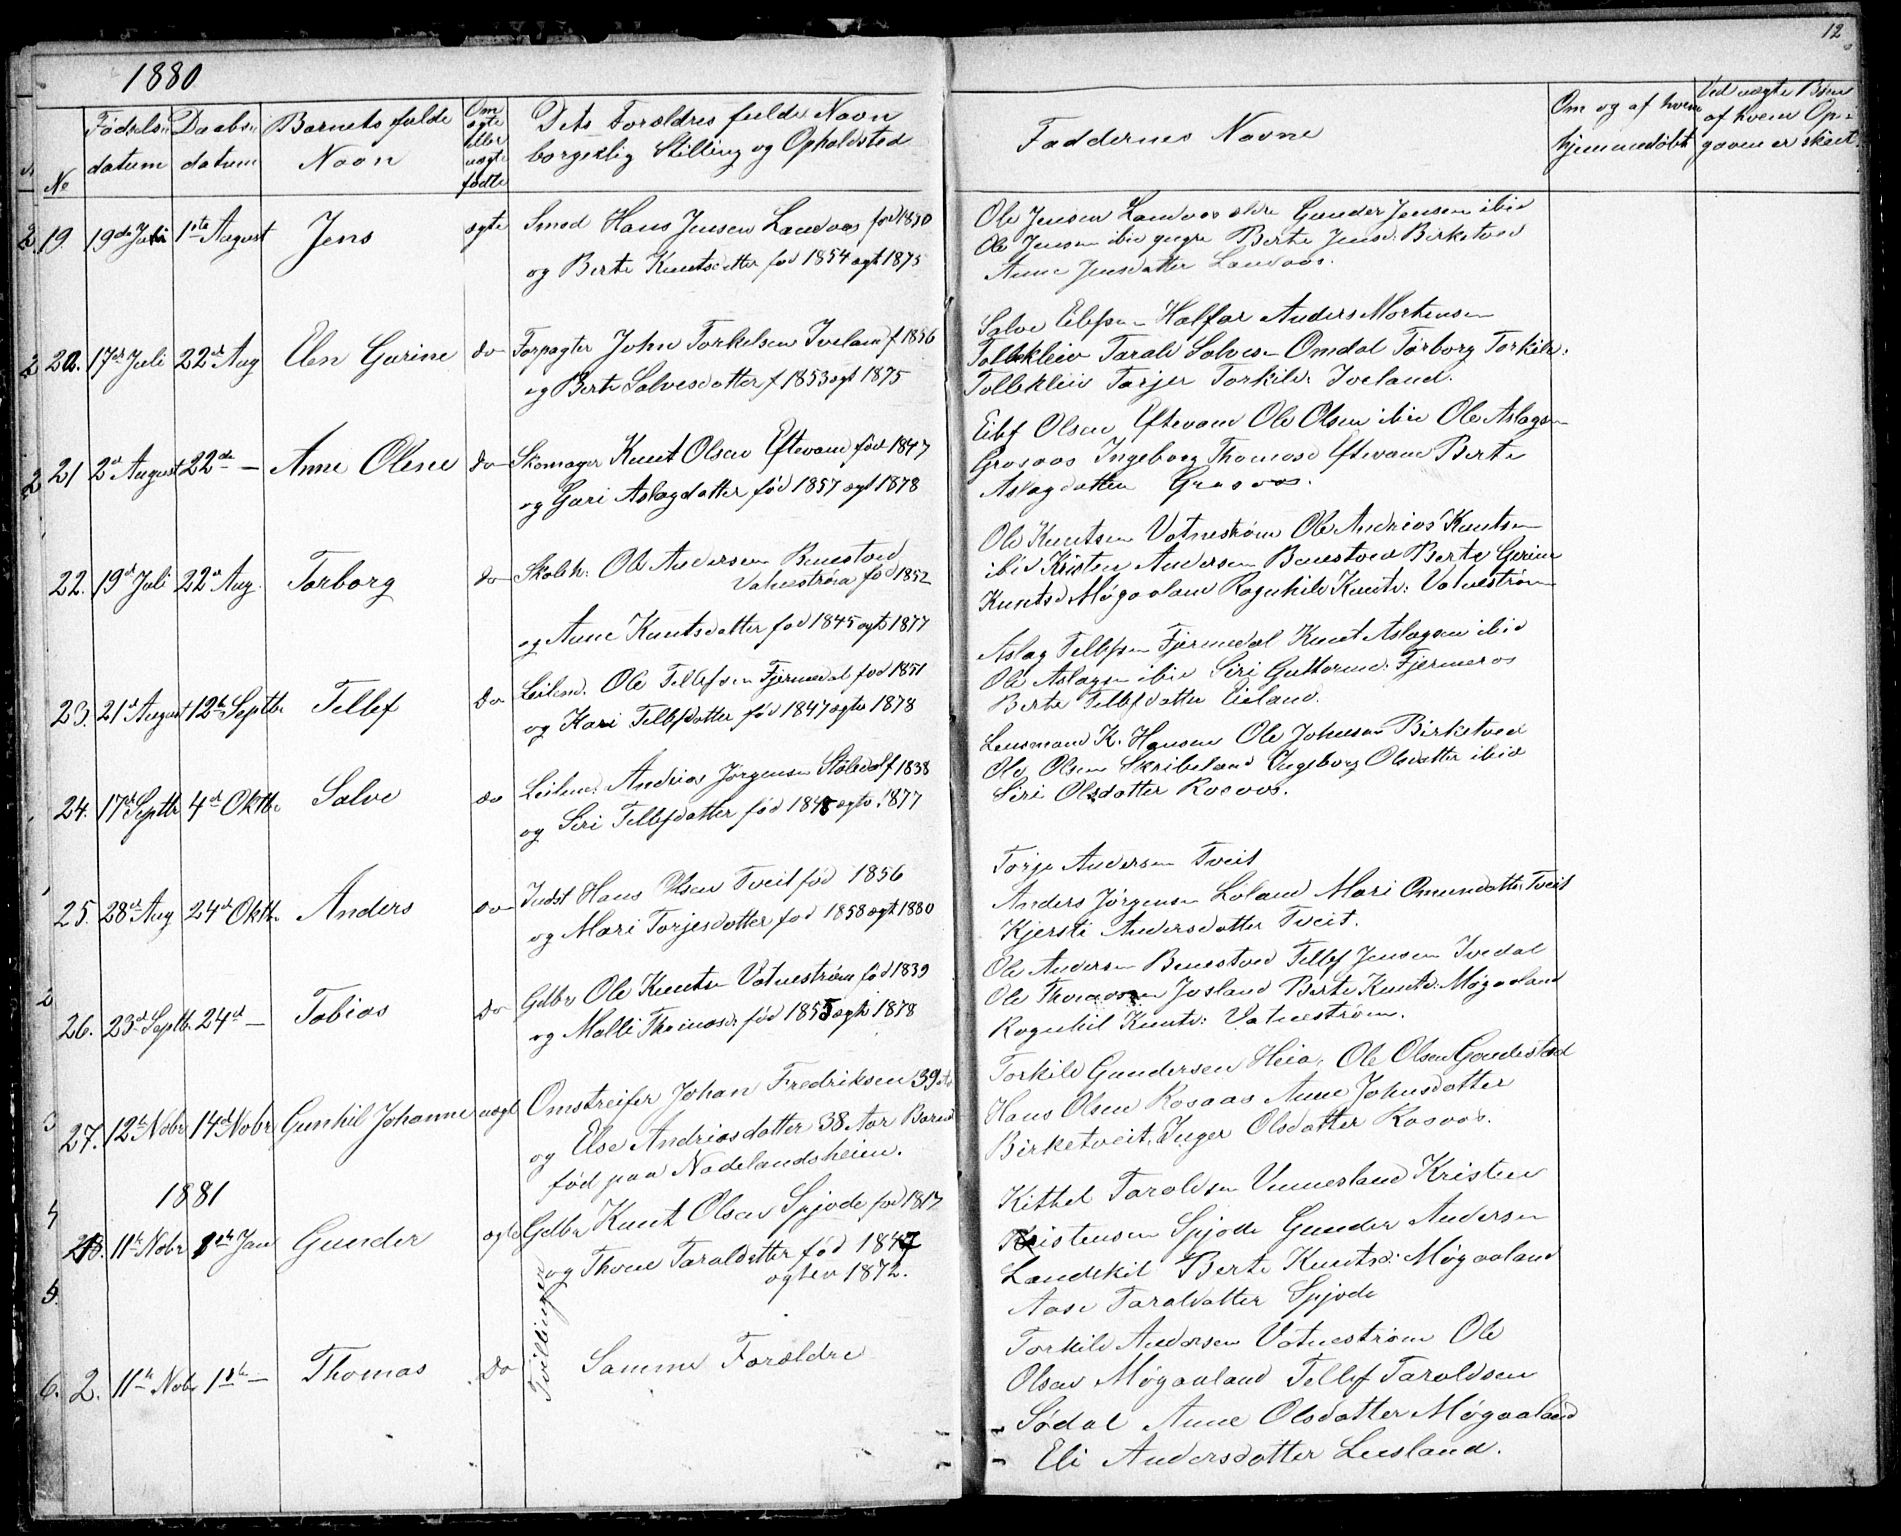 12
1880
No
Fødselsdatum
Daabsdatum
Barnets fulde Navn
Om ægte eller uægte fødte
Dets Forældres fulde Navn borgerlig Stilling og Opholdsted
Faddernes Navne
Om og af hvem hjemmedøbt
Ved uægte Børn af hvem Opgaven er skeet
19 19de Juli 1ste August Jens ægte Smed Hans Jensen Landaas fød 1850
og Berte Kuntsdatter fød 1854 ægt 1875
Ole Jensen Landaas ældre Gunder Jensen ibid
Ole Jensen ibid yngre Berte Jensd. Birketved
Anne Jensdatter Landaas.
20. 17de Juli 22de Aug Elen Garine do Forpagter John Torkelsen Iveland f 1856
og Berte Salvesdatter f 1853 ægt 1875
Salve Elefsen Halfar Anders Mortensen
Tollekleiv Tarald Salvesen Omdal Torborg Torkilds.
Tollekleiv Tarjer Torkilds. Iveland.
21 2d August 22de — Anne Olene do Skomager Knut Olsen Eftevand fød 1847
og Gari Aslagdatter fød 1857 ægt 1878
Elef Olsen Eftevand Ole Olsen ibid Ole Aslags-
Grosaas Ingeborg Thomasd Eftevand Berte
Aslagdatter Grosaas.
22. 19d Juli 22d Aug. Torborg do Skoleh. Ole Andersen Benestved
Vatnestrøm fød 1852
og Anne Kuntsdatter fød 1845 ægt 1877
Ole Kuntsen Vatnestrøm Ole Andrias Kuntsen
ibid Kristen Andersen Benestved Berte Gurine
Kuntsd Møgaaland Ragnhild Kuntsd: Vatnestrøm
23. 21d August 12th Septbr Tellef do Leilend. Ole Tellefsen Fjermedal fød 1851
og Kari Tellefdatter fød 1847 ægte 1878
Aslag Tellefsen Fjermedal Knut Aslagsen ibid
Ole Aslagsen ibid Siri Guttormsd. Fjermeros
Berte Tellefdatter Eieland.
24. 17d Septbr 4d Oktbr Salve do Leilend. Andrias Jørgensen Støledal f 1838
og Siri Tellefdatter fød 1848 ægte 1877
Lensmand K. Hansen Ole Johnsen Birketved
Ole Olsen Skribeland Ingeborg Olsdatter ibid
Siri Olsdatter Rosaas.
25. 28d Aug 24d Oktbr. Anders do Indst Hans Olsen Tveit fød 1856
og Mari Torjesdatter fød 1858 ægt 1880
Torje Andersen Tveit
Anders Jørgensen Loland Mari Omundatter Tveit
Kjersti Andersdatter Tveit.
26. 23d Septb. 24d — Tobias do Gdbr Ole Kuntsen Vatnestrøm fød 1839
og Malli Thomasd. fød 1855 ægt 1878
Ole Andersen Benestved Tellef Jensen Ivedal
Ole Thomassen Josland Berte Kuntsd. Møgaaland
Ragnhil Kuntsd: Vatnestrøm.
27. 12th Nobr 14d Nobr Gunhil Johanne uægt Omstreifer Johan Fredriksen 39
og Else Andriasdatter 38 Aar Barnet
fød paa Nadelandsheien.
Torkild Gundersen Heia. Ole Olsen Gaudestad
Hans Olsen Rosaas Anne Johnsdatter
Birketveit, Inger Olsdatter Rosaas.
1881
1. 11th Nobr 1th Jan Gunder ægte Gdbr Knut Olsen Spjode fød 1817
og Thone Taraldatter fød 1847
ægtev 1872.
Kittel Taraldsen Vennesland Kristen
Kristensen Spjode Gunder Andersen
Landskil Berte Kuntsd. Møgaaland
Aase Taraldatter Spjode
Tvillinger
2. 11th Nobr 1th — Thomas do Samme Forældre
Torkild Andersen Vatnestrøm Ole
Olsen Møgaaland Tellef Taraldsen
Sødal Anne Olsdatter Møgaaland
Eli Andersdatter Lusland.